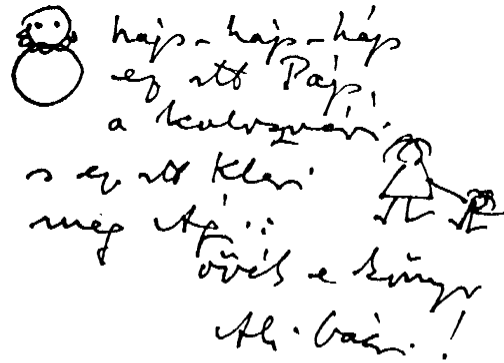 háp-háp-háp
ez itt Páp,
a kolozsvári
s ez itt Klári
meg Ági:
övék e könyv
Ali bácsi!